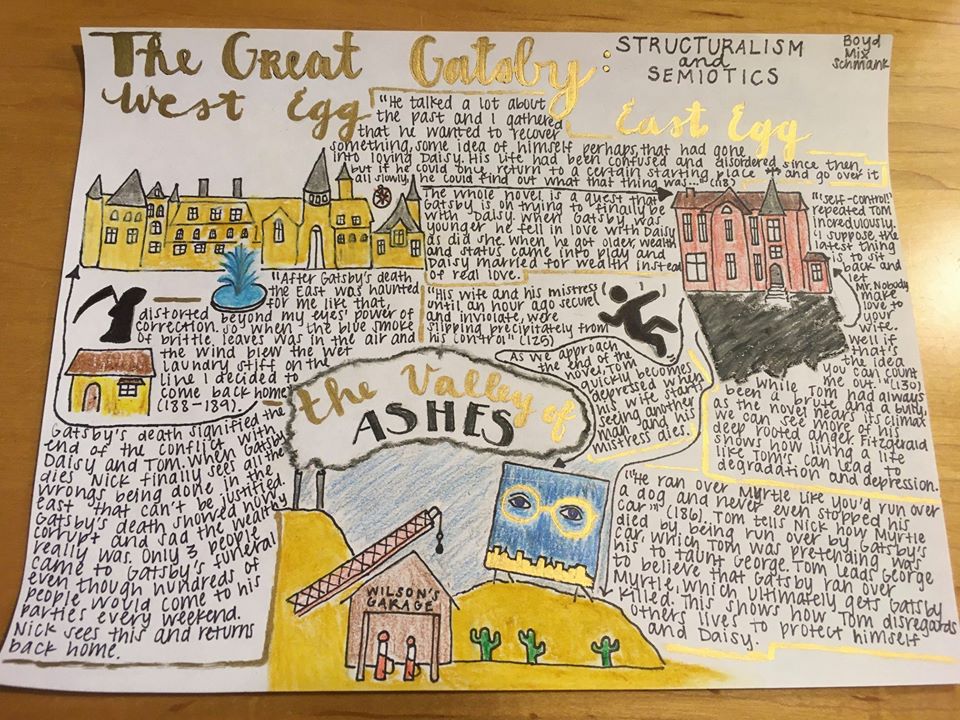 The Great Gatsby:
STRUCTURALISM
and
SEMIOTICS
Boyd
Mix
Schmank
West Egg
East Egg
"He talked a lot about
the past and I gathered
that he wanted to recover
something, some idea of himself perhaps, that had gone
into loving Daisy. His life had been confused and disordered since then,
but if he could once return to a certain starting place and go over it
all slowly, he could find out what that thing was..." (118)
The whole novel is a quest that
Gatsby is on trying to finally be
with Daisy. When Gatsby was
younger he fell in love with Daisy
as did she. When he got older wealth
and status came into play and
Daisy married for wealth instead
of real love.
"'Self-control!'
repeated Tom
incredulously.
'I suppose the
latest thing
is to sit
back and
let
Mr. Nobody
make
love to
your
wife.
Well if
that's
the idea
you can count
me out.'" (130)
While Tom had always
been a brute and a bully,
as the novel nears its climax
we can see more of his
deep rooted anger. Fitzgerald
shows how living a life
like Tom's can lead to
degradation and depression.
"After Gatsby's death
the East was haunted
for me like that,
distorted beyond my eyes' power of
correction. So when the blue smoke
of brittle leaves was in the air and
the wind blew the wet
laundry stiff on the
line I decided to
come back home"
(188-189).
"His wife and his mistress
until an hour ago secure
and inviolate, were
slipping precipitately from
his control" (125)
As we approach
the end of the
novel, Tom
quickly becomes
depressed when
his wife starts
seeing another
man and his
mistress dies.
the Valley of
ASHES
Gatsby's death signified the
end of the conflict with
Daisy and Tom. When Gatsby
dies Nick finally sees all the
wrongs being done in the
East that can't be justified.
Gatsby's death showed how
corrupt and sad the wealthy
really was. Only 3 people
came to Gatsby's funeral
even though hundreds of
people would come to his
parties every weekend.
Nick sees this and returns
back home.
WILSON'S
GARAGE
"'He ran over Myrtle like you'd run over
a dog and never even stopped his
car'" (186). Tom tells Nick how Myrtle
died by being run over by Gatsby's
car, which Tom was pretending was
his to taunt George. Tom leads George
to believe that Gatsby ran over
Myrtle, which ultimately gets Gatsby
killed. This shows how Tom disregards
others lives to protect himself
and Daisy.